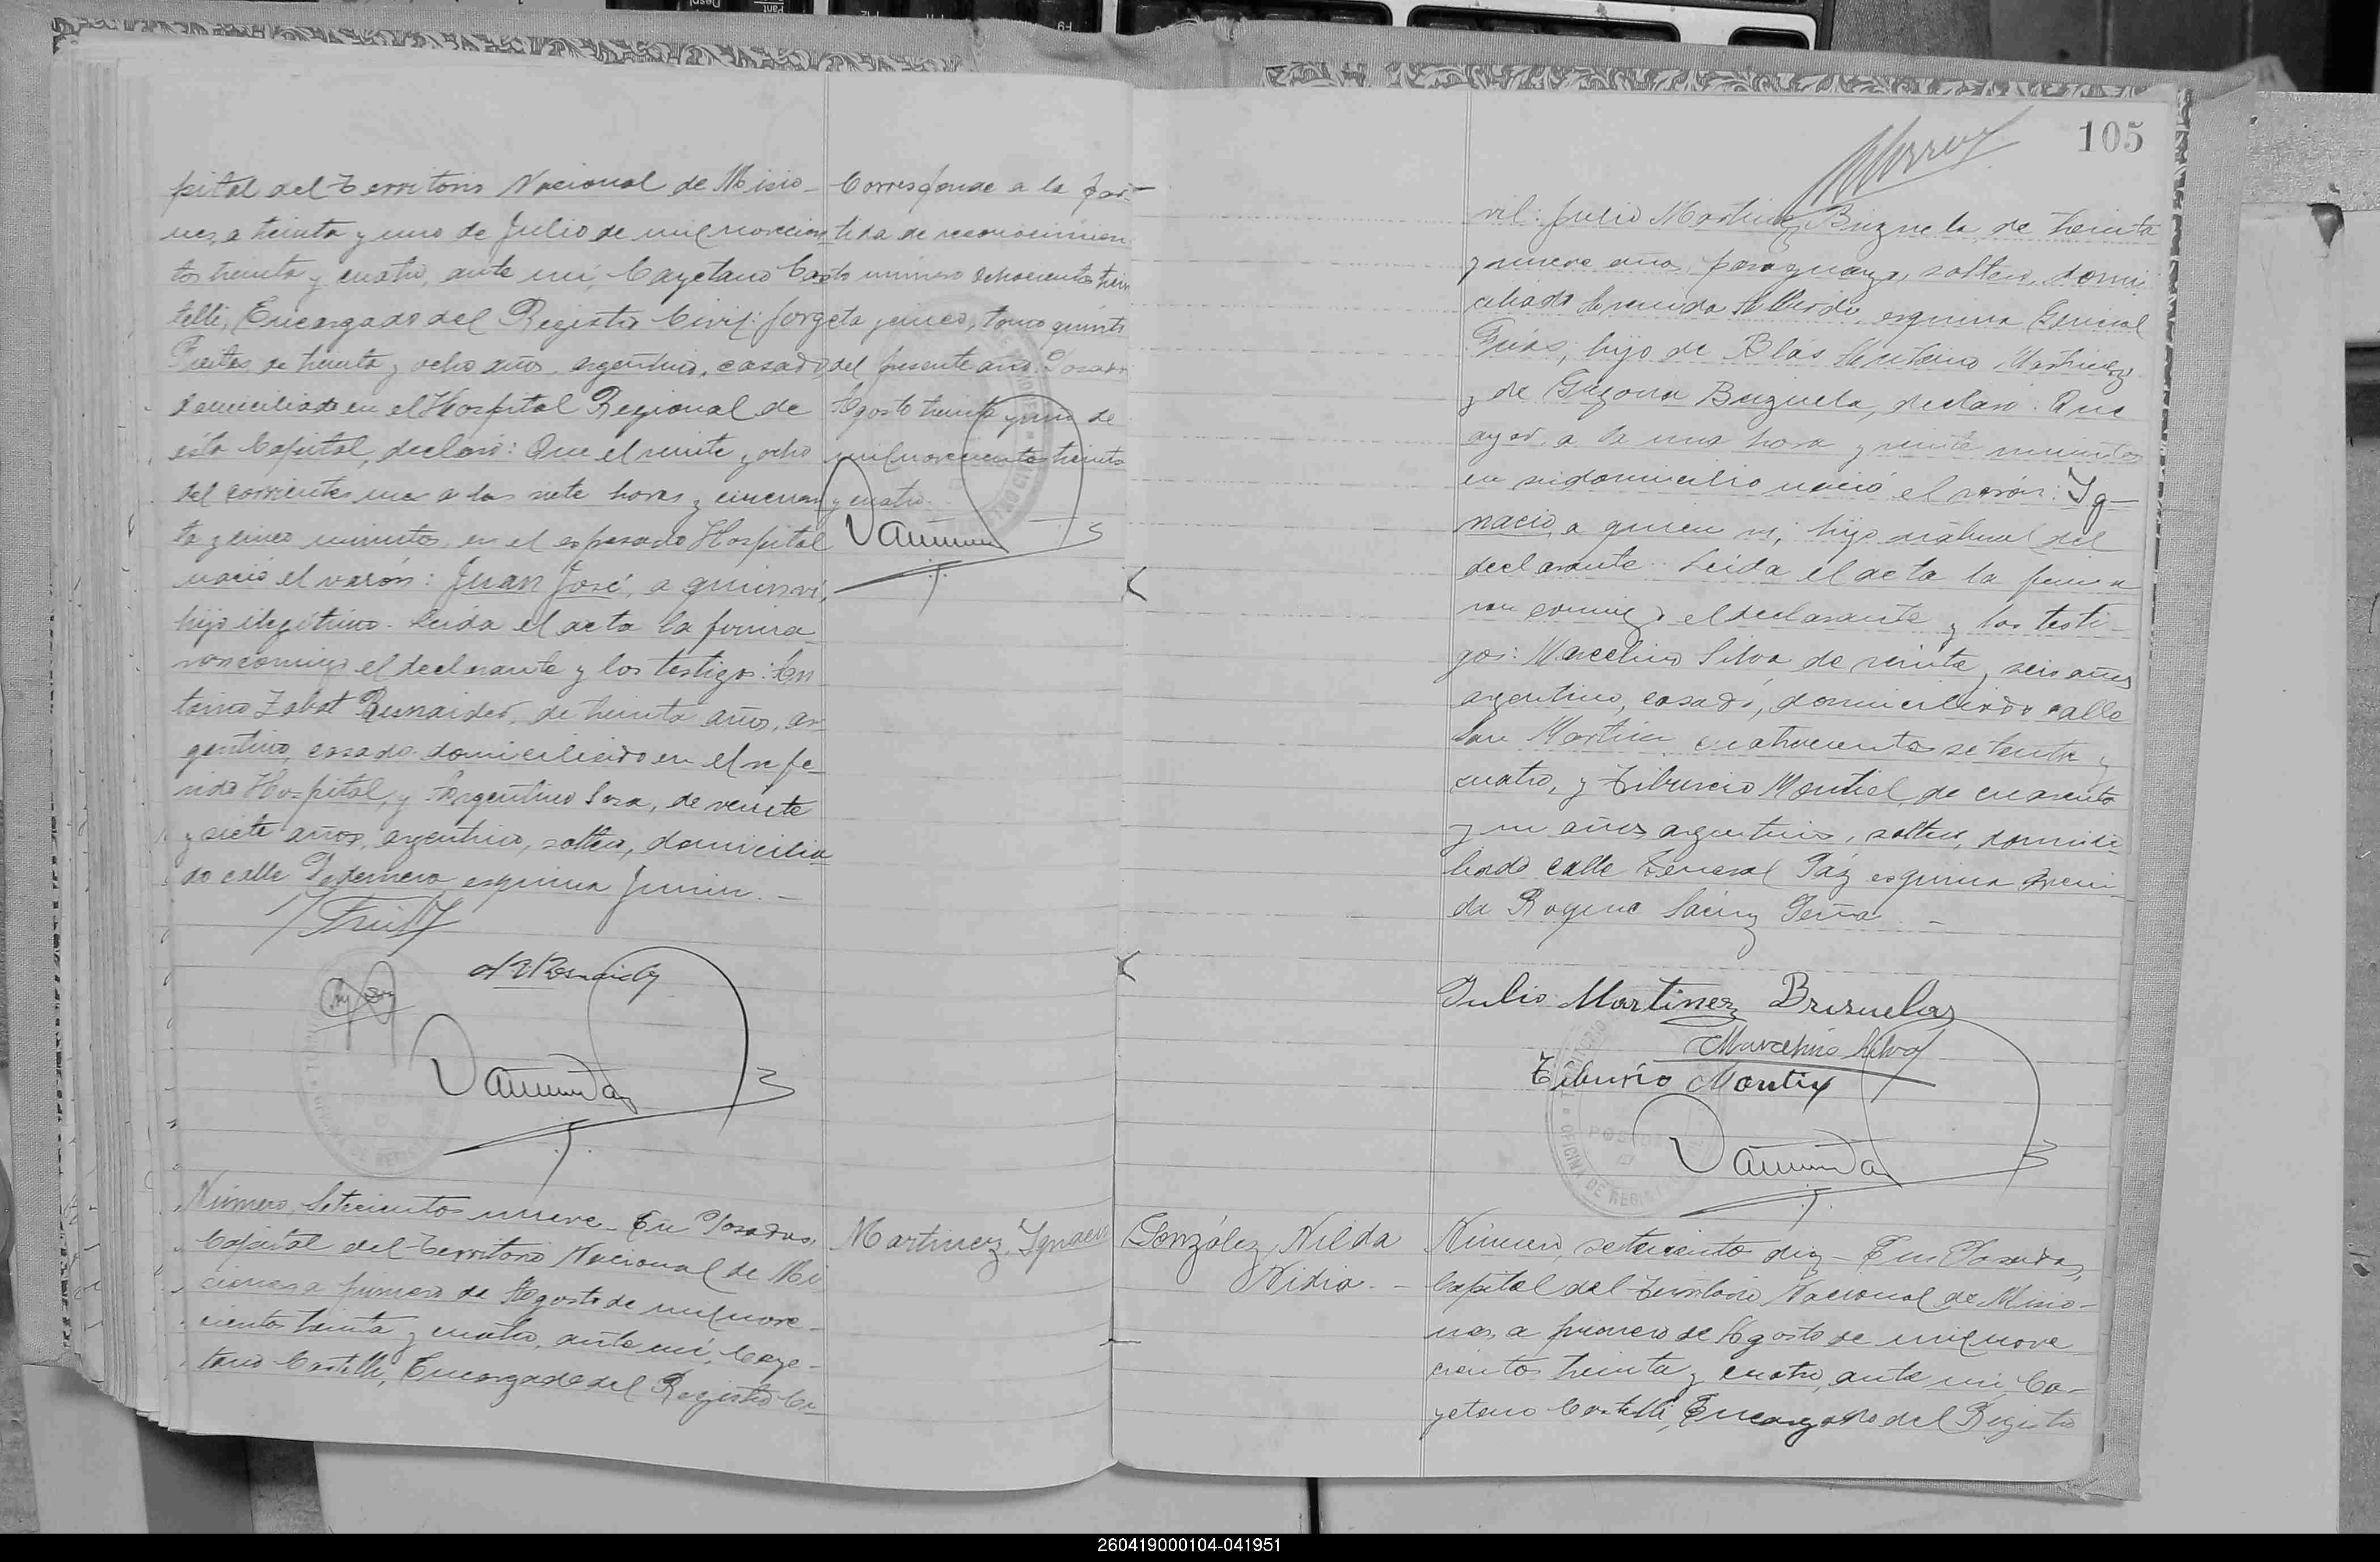 pital del Territorio Nacional de Misio-
nes, a treinta y uno de Julio de mil novecien
tos treinta y cuatro, ante mí, Cayetano Cas
telli, Encargado del Registro Civil: Jorge
de treinta y ocho años, argentino, casado,
domiciliado en el Hospital Regional de
ésta Capital, declaró: Que el veinte y ocho
del corriente mes a las siete horas y cincuen
ta y cinco minutos, en el expresado Hospital
nació el varón: Juan José, a quien ví,
hijo ilegítimo. Leida el acta la firma-
ron conmigo el declarante y los testigos: An
tonio Zabat Resnaider, de treinta años, ar-
gentino, casado, domiciliado en el refe-
rido Hospital, y Argentino Sosa, de veinte
y siete años, argentino, soltero, domicilia
do calle Pedernera esquina Junin. -
Corresponde a la par-
tida de reconocimien
to número ochocientos trein
ta y cinco, tomo quinto
del presente año. Posadas
Agosto treinta y uno de
mil novecientos treinta
y cuatro.
Número, Setecientos nueve- En Posadas,
Capital del Territorio Nacional de Mi
siones a primero de Agosto de mil nove-
cientos treinta y cuatro, ante mí, Caye-
tano Castelli, Encargado del Registro Ci-
Martinez, Ignacio
105
vil: Julio Martinez Brizuela, de treinta
y nueve años, paraguayo, soltero, domi
ciliado Avenida Alberdi, esquina General
Frias, hijo de Blás Antonio Martinez
y de Gregoria Brizuela, declaró: Que
ayer, a la una hora y veinte minutos
en su domicilio nació el varón: Ig-
nacio, a quien ví, hijo natural del
declarante. Leida el acta la firma
ron conmigo el declarante y los testi-
gos: Marcelino Silva de veinte y seis años
argentino, casado, domiciliado calle
San Martin cuatrocientos setenta y
cuatro, y Tiburcio Montiel de cuarenta
y un años, argentino, soltero, domici-
liado calle General Páz esquina Aveni-
da Roque Sáenz Peña. -
Julio Martinez Brizuela
Marcelino Silva
Tiburcio Montiel
POSADAS
OFICINA DE REGISTRO
González, Nilda
Nidia. -
Número, setecientos diez- En Posadas,
Capital del Territorio Nacional de Misio-
nes, a primero de Agosto de mil nove
cientos treinta y cuatro, ante mí, Ca-
yetano Castelli, Encargado del Registro
260419000104-041951